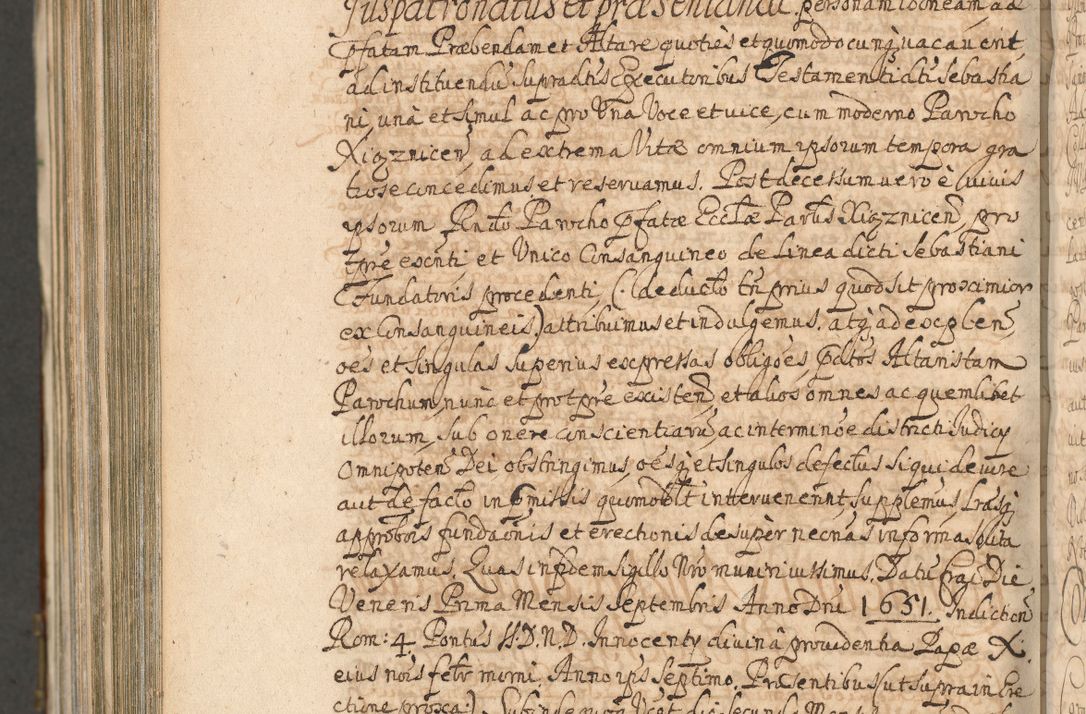 Juspatronatus et præsentandi personam idoneam ad
Pfatam Præbendam et Altare quoties et quomodocunq vacaverit
ad instituendũ supradictis Executoribus Testamenti dicti Sebastia
ni, unà et simul ac pro Una Voce et vice, cum moderno Parocho
Xiąznicen, ad extrema Vitæ omnium ipsorum tempora gra
tiose concedimus et reservamus. Post decessum uero è vivis
ipsorum Pndto Parocho pfatæ Ecclæ Parlis Xiąznicen, pro
tpre exnti, et Unico Consanguineo de Linea dicti Sebastiani
Fundatoris procedenti, (: deducto tn prius quod sit proximior
ex Consanguineis:) attribuimus et indulgemus. atq ad explen
oes et singulas superius expressas obligoes pdtos Altaristam
Parochum nunc et pro tpre existen, et alios omnes ac quemlibet
illorum, sub onere conscientiarũ ac interminoe districti Judicy
Omnipoten Dei obstringimus, oesq et singulos defectus siqui de iure
aut de facto in pmissis quomodolt intervenerint, supplemus Lrasq
approbois fundaonis et erectionis desupèr necnas in forma solita
relaxamus. Quas in fidem sigillo Nro muniri iussimus. Datũ Crac Die
Veneris Prima Mensis Septembris Anno Dni 1651. Indiction
Rom: 4. Pontus SS. D. N. D. Innocenty divinâ providentia Papæ X.
eius nois felr morni, Anno ips Septimo. Præsentibus (ut supra in Ere
ctione proxa:)